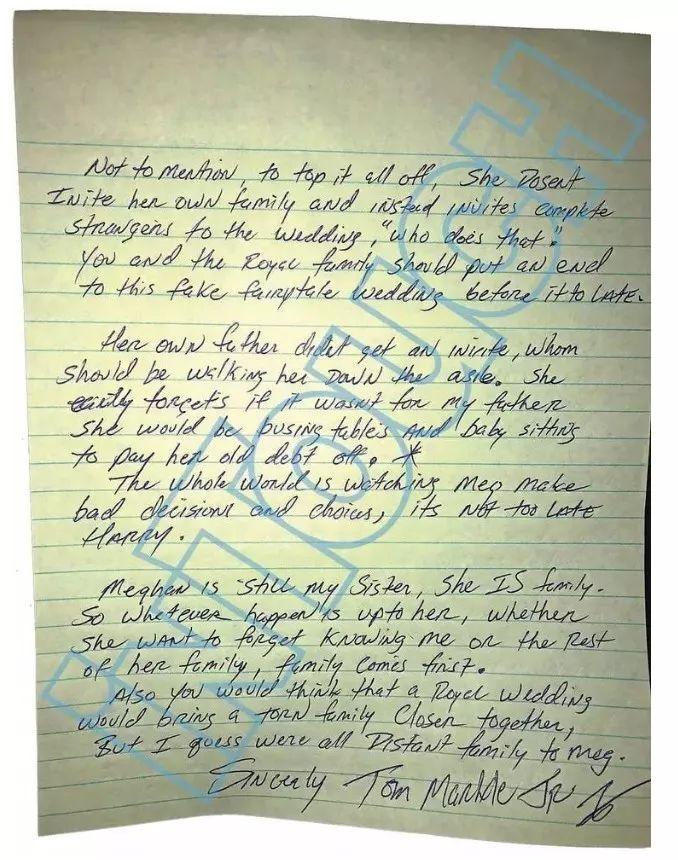 Not to mention, to top it all off, She Dosent
Inite her own family and instead invites complete
strangers to the wedding, "who does that."
You and the Royal family should put an end
to this fake fairytale wedding before it to LATE.
Her own father didn't get an invite, whom
should be walking her down the asle. She
forgets if it wasn't for my father
She would be busing tables AND baby sitting
to pay her old debt off. *
The whole world is watching Meg make
bad decisions and choices, its NOT too LATE
HARRY.
Meghan is still my Sister, She IS family.
So whatever happen is upto her, whether
She WANT to forget Knowing me or the Rest
of her family, family comes first.
Also you would think that a Royal wedding
would bring a TORN family Closer together,
But I guess were all Distant family to Meg.
Sincerly Tom Markle Jr
INTOUCH